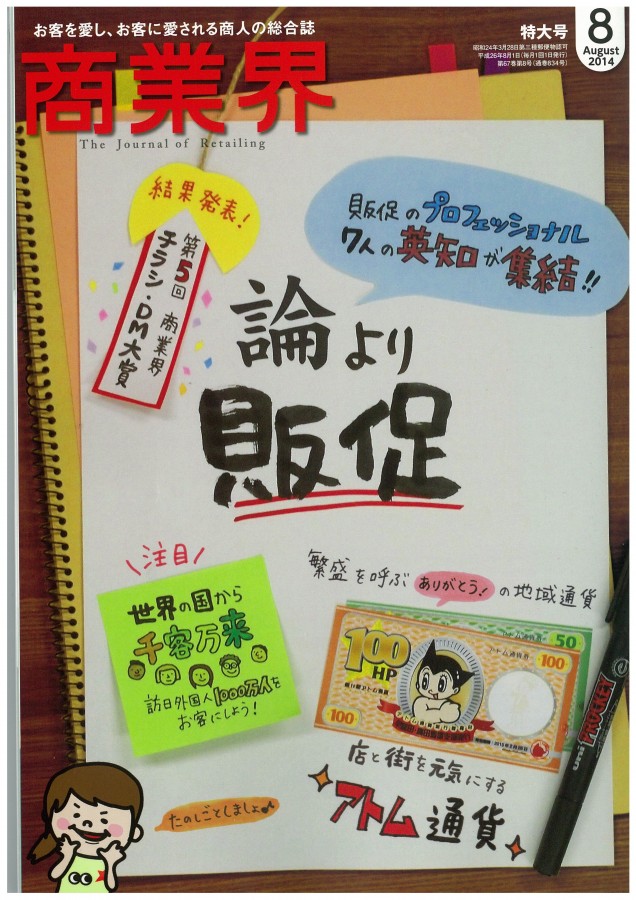 お客を愛し、お客に愛される商人の総合誌
特大号
8
August
2014
昭和24年3月28日第三種郵便物認可
平成26年8月1日(毎月1回1日発行)
第67巻第8号(通巻834号)
商業界
The Journal of Retailing
結果発表!
第5回 商業界
チラシ・DM大賞
販促のプロフェッショナル
7人の英知が集結!!
論より
販促
注目
世界の国から
千客万来
訪日外国人1000万人を
お客にしよう!
繁盛を呼ぶ ありがとう! の地域通貨
アトム通貨 50
アトム通貨 100
100
HP
100
店と街を元気にする
アトム通貨
たのしごとしましょ♪
uni